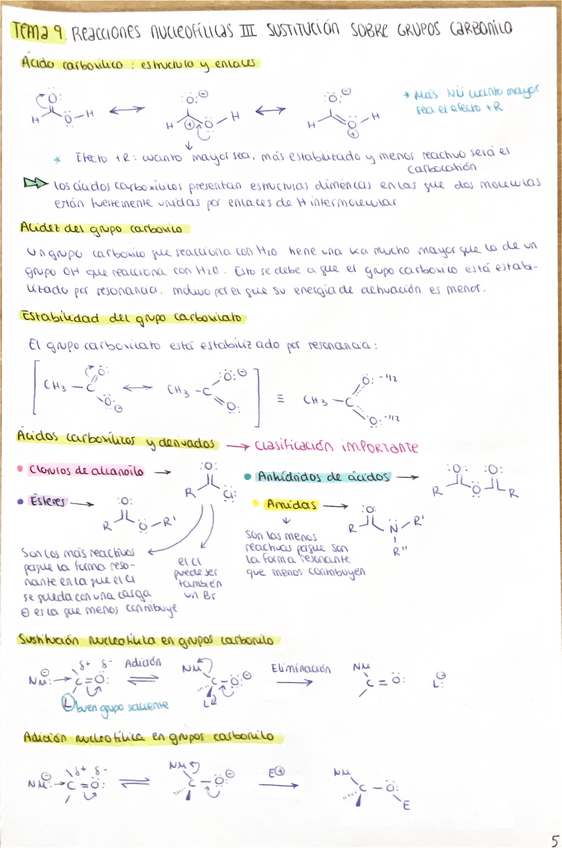 TEMA 9. REACCIONES NUCLEOFÍLICAS III SUSTITUCIÓN SOBRE GRUPOS CARBONILO
Ácido carboxílico : estructura y enlaces
* Más Nü cuanto mayor
sea el efecto +R
* Efecto +R: cuanto mayor sea, más estabilizado y menos reactivo será el
carbocatión
Los ácidos carboxílicos presentan estructuras diméricas en las que dos moléculas
están fuertemente unidas por enlaces de H intermolecular
Acidez del grupo carboxilo
Un grupo carboxilo que reacciona con H2O tiene una ka mucho mayor que la de un
grupo OH que reacciona con H2O. Esto se debe a que el grupo carboxilo está estabi-
lizado por resonancia, motivo por el que su energía de activación es menor.
Estabilidad del grupo carboxilato
El grupo carboxilato está estabilizado por resonancia:
CH3 - C Ö: :Ö: ⊖ ⟷ CH3 - C :Ö: ⊖ O: ≡ CH3 - C O: -1/2 O: -1/2
Ácidos carboxílicos y derivados → CLASIFICACIÓN IMPORTANTE
• Cloruros de alcanoílo → :O: R Cl:
• Anhídridos de ácidos → :O: :O: R O R
• Ésteres → :O: R O - R'
• Amidas → :O: R N - R' R''
Son los más reactivos
porque la forma reso-
nante en la que el Cl
se queda con una carga
⊕ es la que menos contribuye
el Cl
puede ser
también
un Br
Son las menos
reactivas porque son
la forma resonante
que menos contribuyen
Sustitución nucleofílica en grupos carbonilo
Nu:⊖ → C = Ö: δ+ δ- Adición ⇌ Nu C - Ö:⊖ L Eliminación → Nu C = Ö: L:⊖
L buen grupo saliente
Adición nucleofílica en grupos carbonilo
Nu:⊖ → C = Ö: δ+ δ- ⇌ Nu C - Ö:⊖ E⊕ → Nu C - Ö: E
5